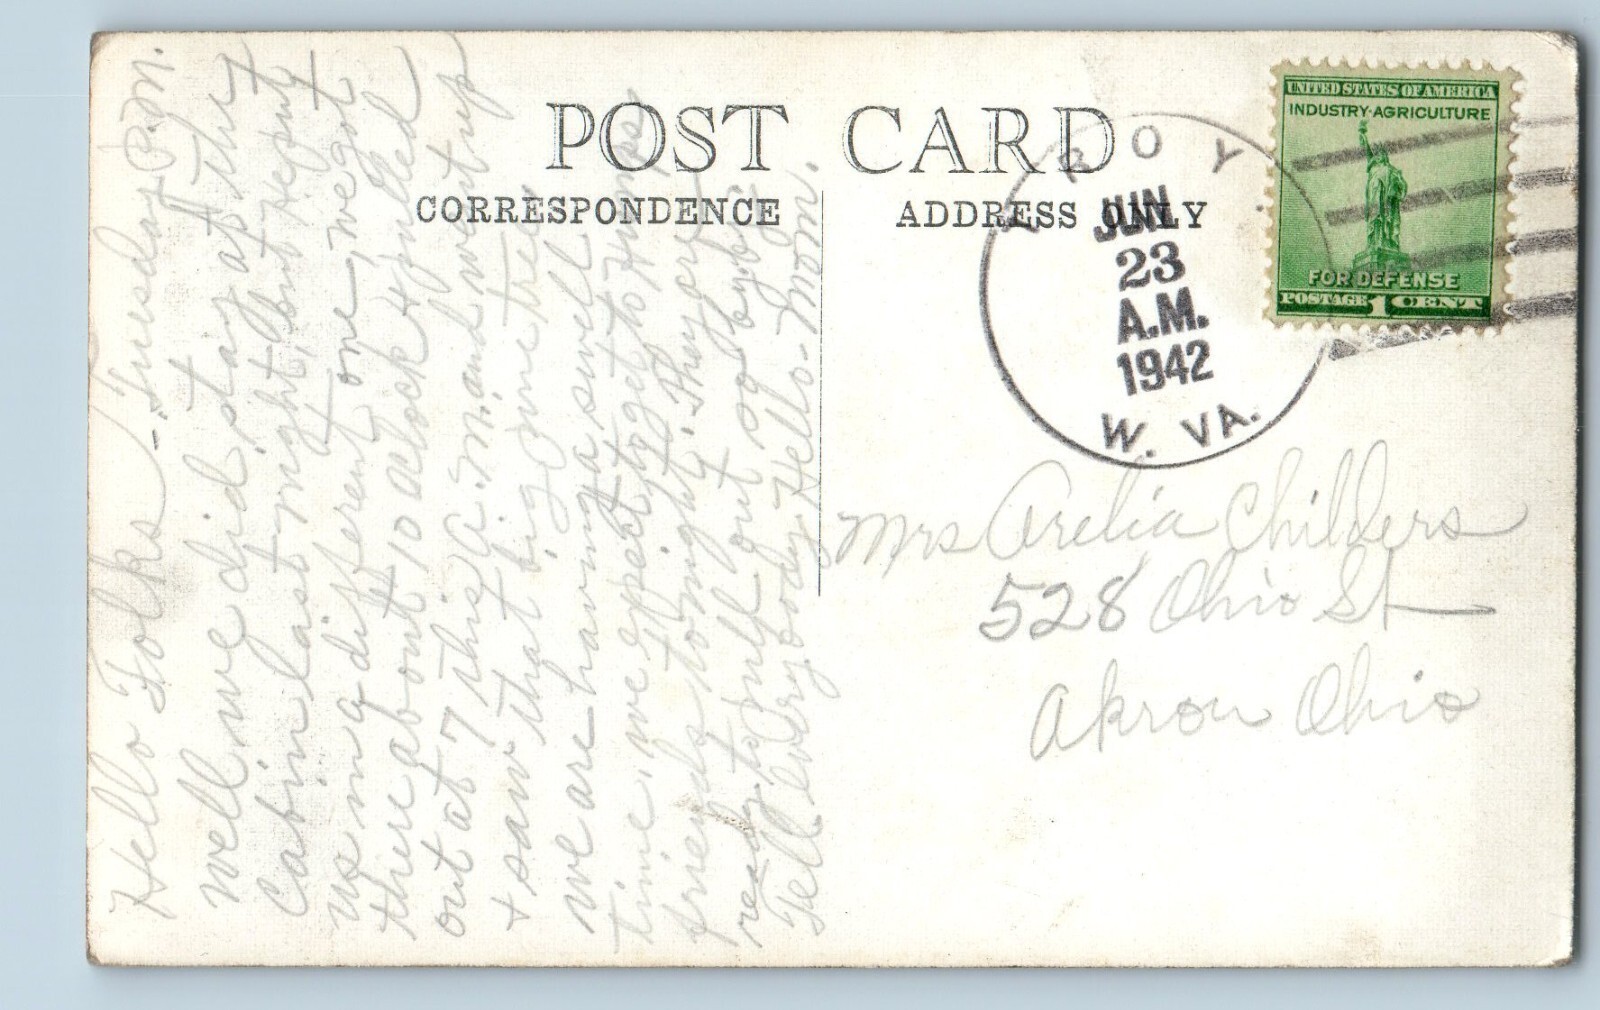 POST CARD
CORRESPONDENCE
ADDRESS ONLY
TROY
JUN
23
A.M.
1942
W. VA.
UNITED STATES OF AMERICA
INDUSTRY·AGRICULTURE
FOR DEFENSE
POSTAGE 1 CENT
Hello Folks - Tuesday P.M.
Well we did stay at the
Cabin last night, but he put
us in a different one, we got
there about 10 oclock & pulled
out at 7 this A.M. and went up
& saw that big pine tree
we are having a swell
time. we expect to get to
friends tonight. They are
ready to pull out so by by
Tell everybody Hello - Mom.
Mrs Arelia Childers
528 Ohio St
Akron Ohio